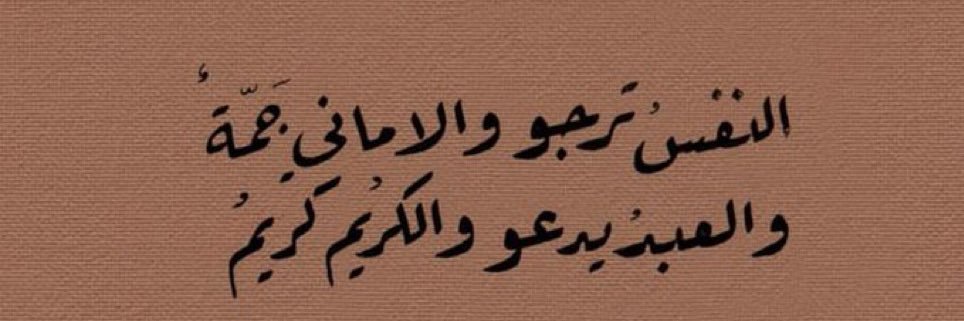 النفسُ ترجو والاماني جَمّةٌ
والعبدُ يدعو والكريُم كريمُ